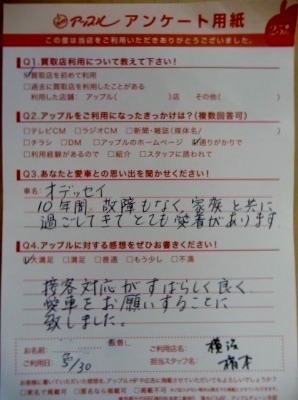 アップル アンケート用紙
この度は当店をご利用いただきありがとうございました。
Q1.買取店利用について教えて下さい!
☑買取店を初めて利用
□過去に買取店を利用したことがある
利用した店舗: アップル( )店 その他( )
Q2.アップルをご利用になったきっかけは?(複数回答可)
□テレビCM □ラジオCM □新聞・雑誌(媒体名/ )
□チラシ □DM □アップルのホームページ ☑通りがかりで
□利用経験があるので □紹介 □スタッフに誘われて
Q3.あなたと愛車との思い出を聞かせください!
車名: オデッセイ
10年間、故障もなく、家族と共に
過ごしてきてとても愛着があります
Q4.アップルに対する感想をぜひお書きください!
☑大満足 □満足 □普通 □もう少し □不満
接客対応がすばらしく良く、
愛車をお願いすることに
致しました。
お名前:
ご利用店名: 横浜
ご利用日: 5/30
担当スタッフ名: